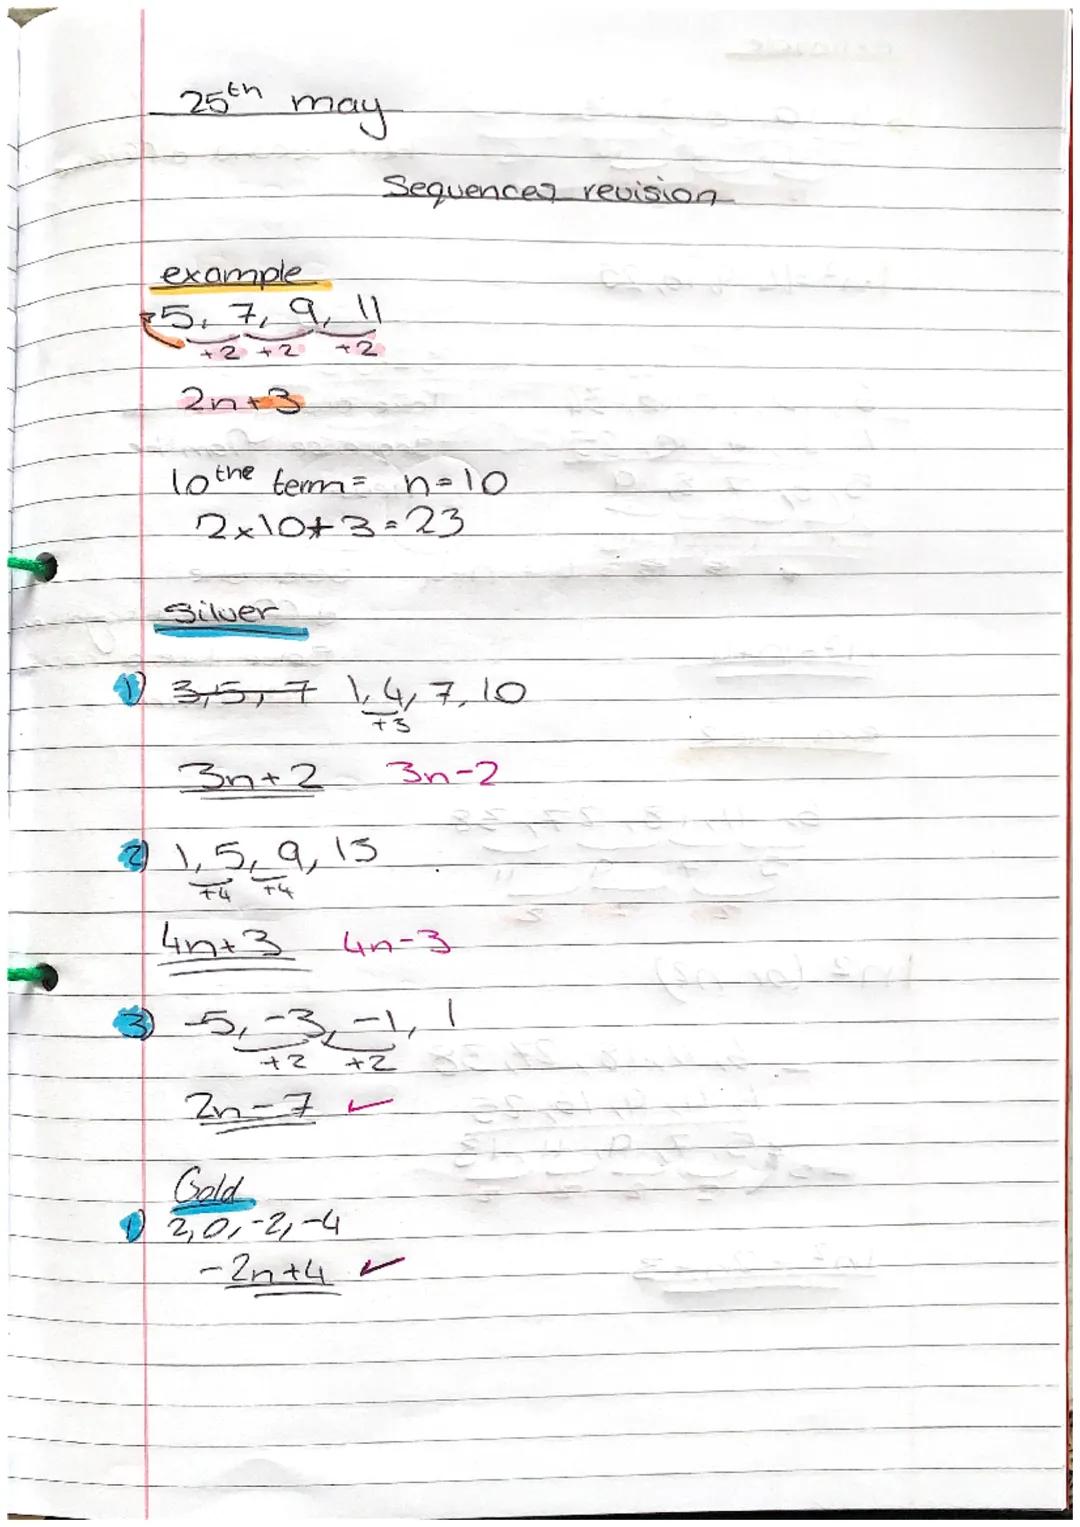 25th may
Sequences revision
example
5, 7, 9, 11
+2 +2 +2
2n+3
10the term = n=10
2x10+3=23
Silver
1) 3,5,7 1,4,7,10
+3
3n+2 3n-2
2) 1,5,9,13
+4 +4
4n+3 4n-3
3) -5,-3,-1, 1
+2 +2
2n-7 ✓
Gold
1) 2,0,-2,-4
-2n+4 ✓